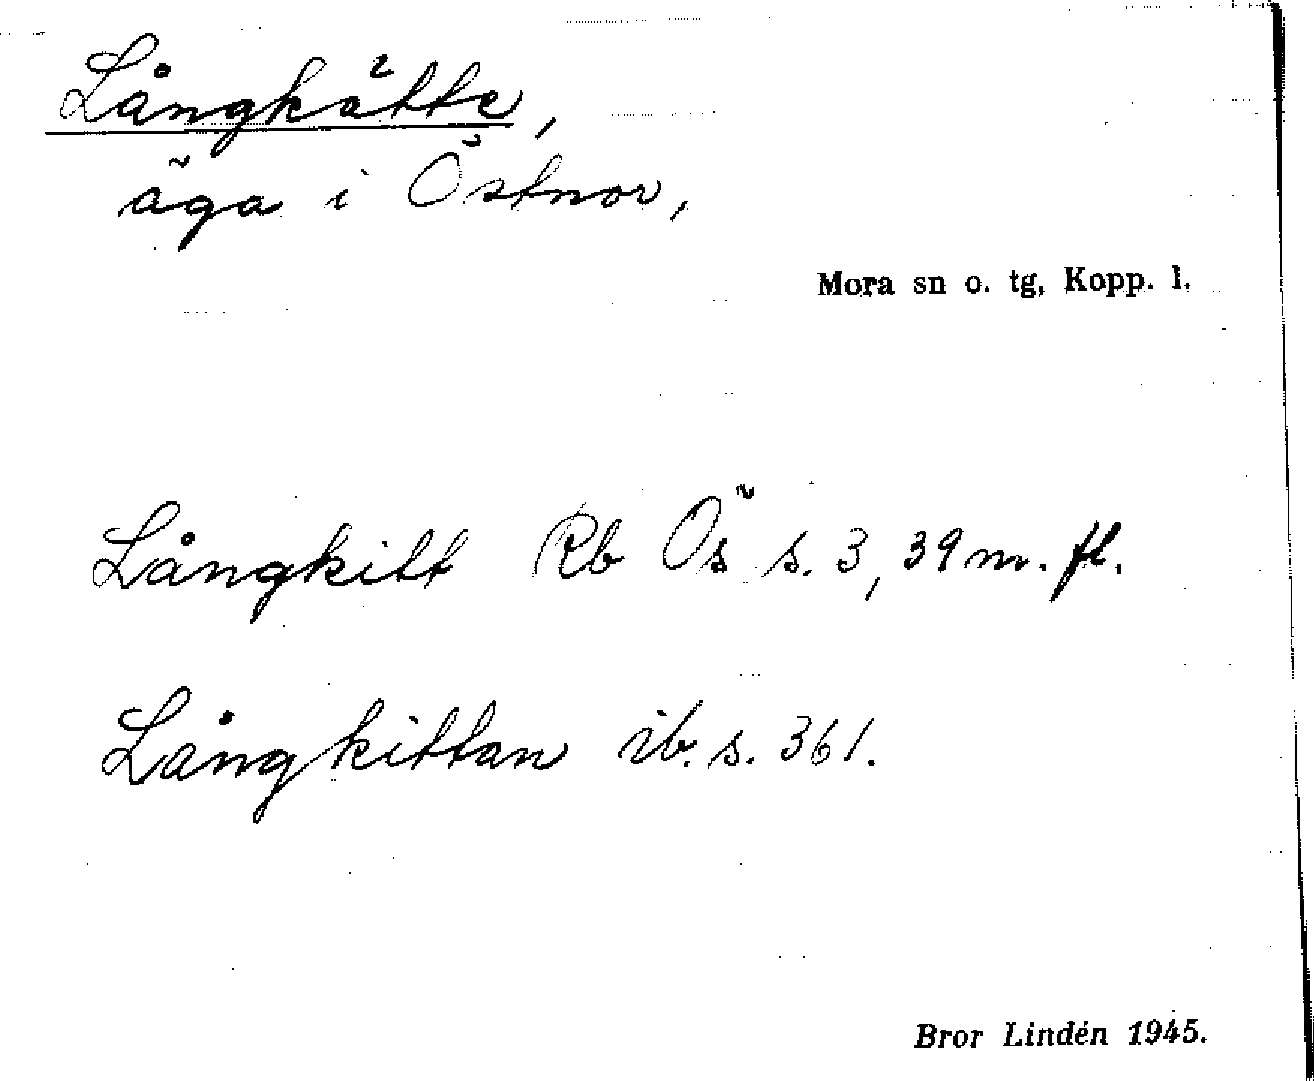 Långkätte,
äga i Östnor,
Mora sn o. tg, Kopp. l.
Långkitt Rb Ös s. 3, 39 m. fl.
Långkittan ib. s. 361.
Bror Lindén 1945.